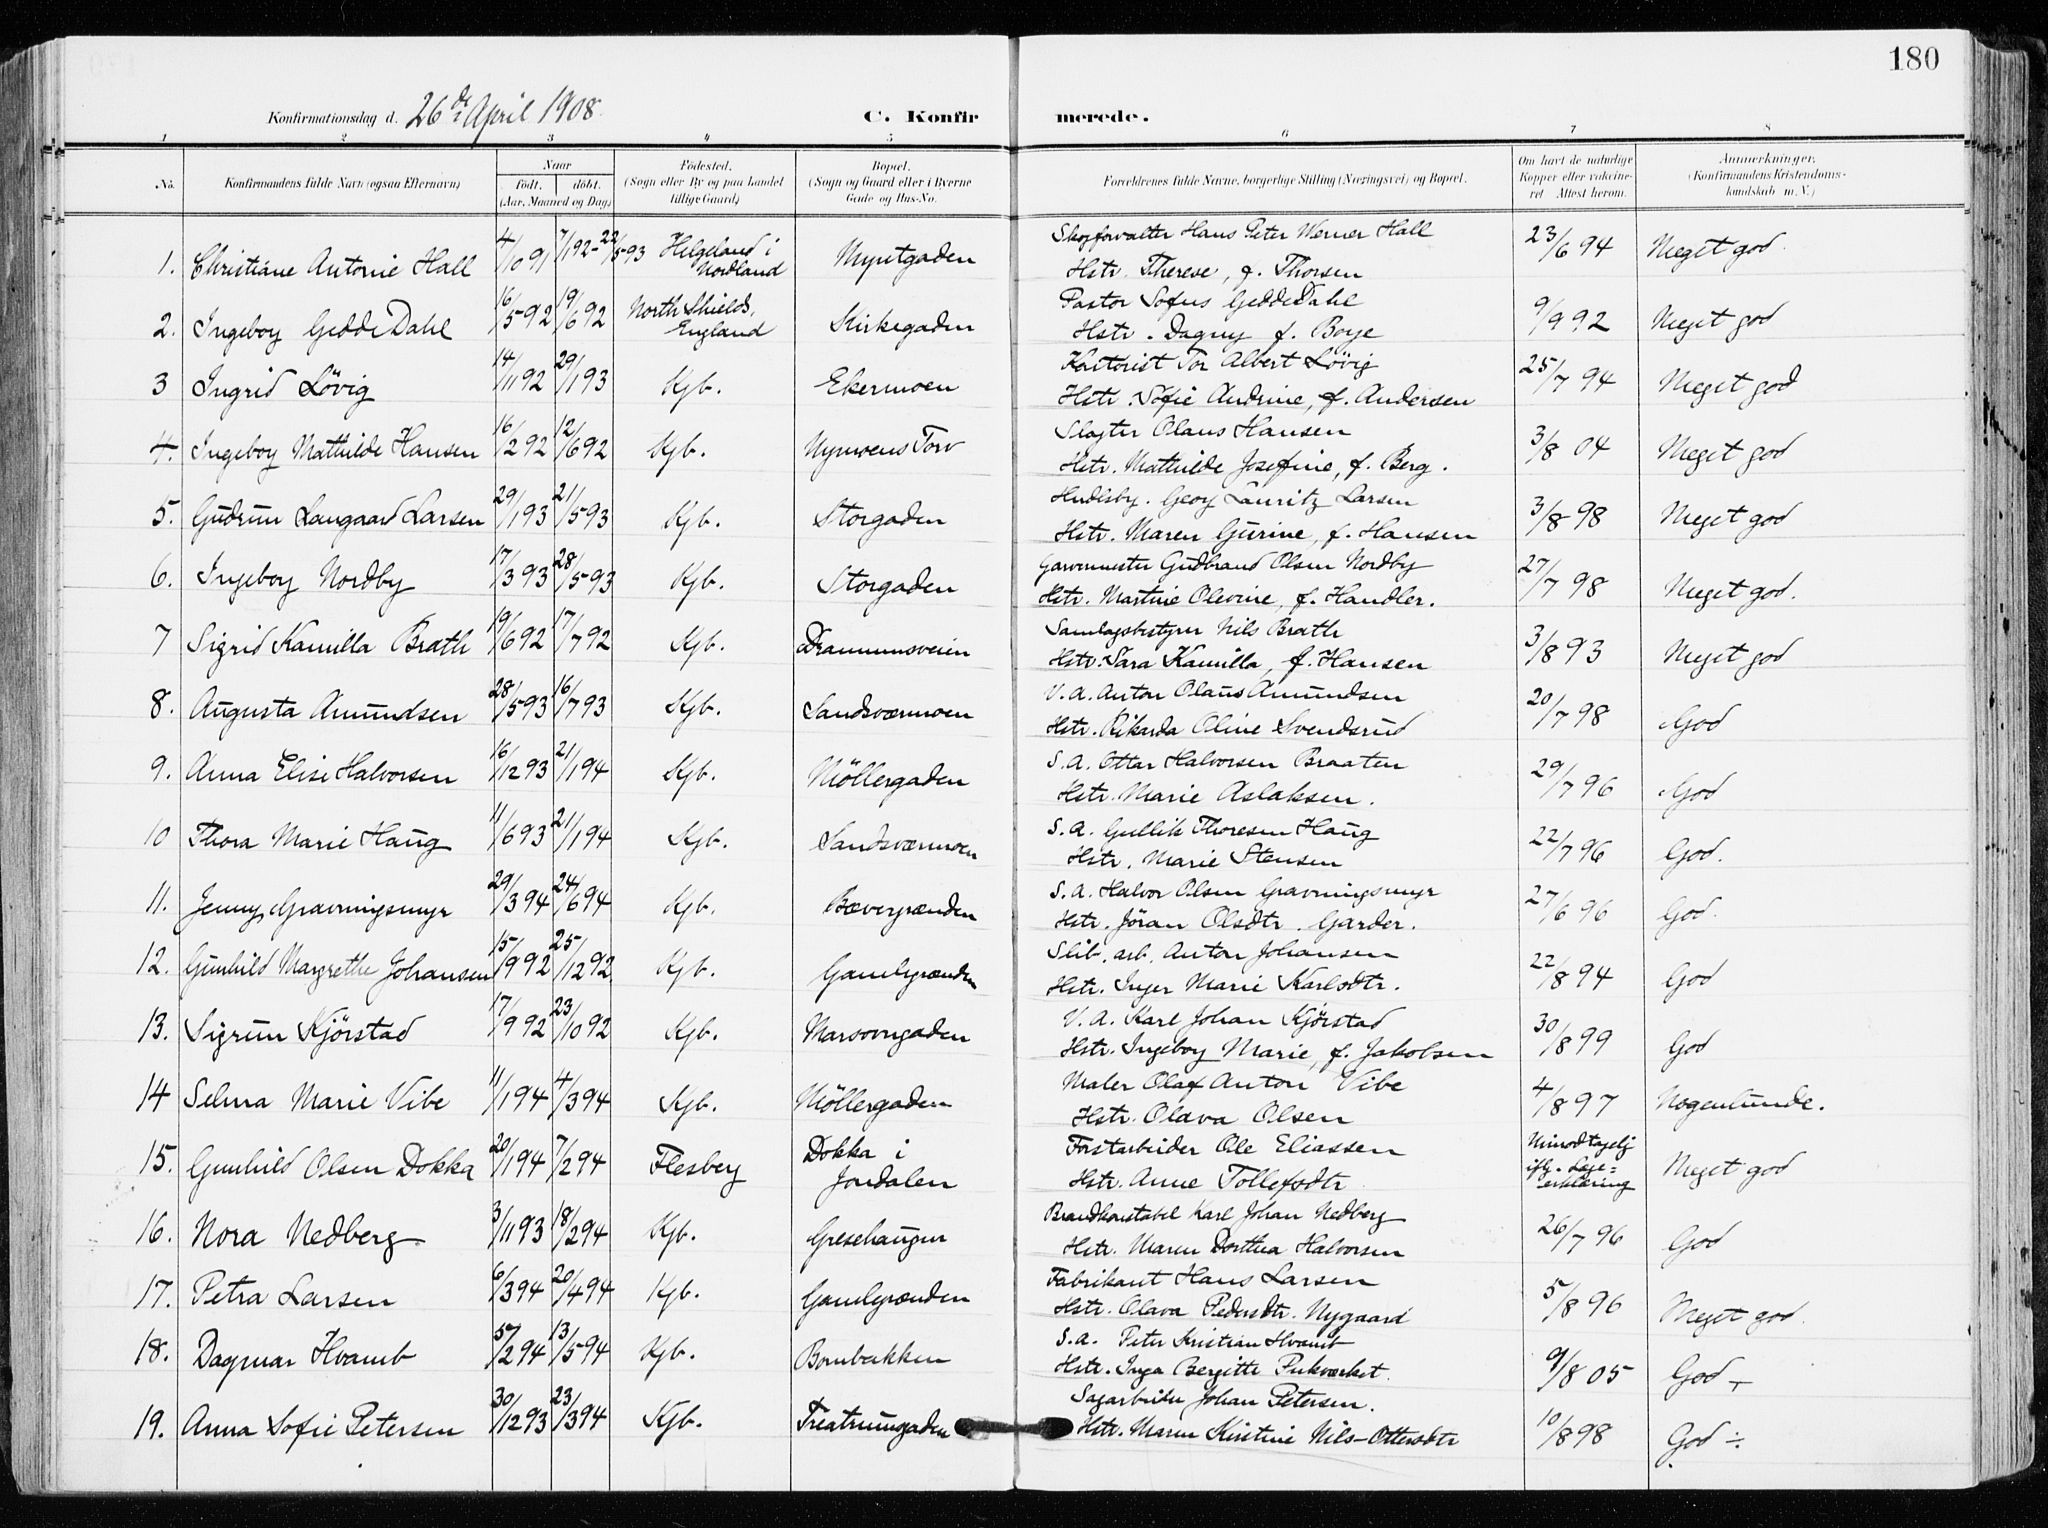 180
Konfirmationsdag d. 26de April 1908.
C. Konfirmerede.
1 2 3 4 5 6 7 8
No.
Konfirmandens fulde Navn (ogsaa Efternavn)
Naar
födt. döbt.
(Aar, Maaned og Dag)
Födested.
(Sogn eller By og paa Landet
tillige Gaard)
Bopæl.
(Sogn og Gaard eller i Byerne
Gade og Hus-No.
Forældrenes fulde Navne, borgerlige Stilling (Næringsvei) og Bopæl.
Om havt de naturlige
Kopper eller vaccine-
ret Attest herom.
Anmerkninger.
(Konfirmandens Kristendoms-
kundskab m. V.)
1. Christiane Antonie Hall 4/10 91 7/1 92 - 22/5 93 Helgeland i Nordland Myntgaden Skogforvalter Hans Peter Werner Hall 23/6 94 Meget god.
Hstr. Therese, f. Thorsen
2. Ingeborg Gedde Dahl 16/5 92 19/6 92 North Shields, England Kirkegaden Pastor Sofus Gedde Dahl 9/9 92 Meget god
Hstr. Dagny f. Boye
3 Ingrid Lövig 14/11 92 29/1 93 Kgb. Ekermoen Kontorist Tor Albert Lövig 25/7 94 Meget god
Hstr. Sofie Andrine, f. Andersen
4. Ingeborg Mathilde Hansen 16/2 92 12/6 92 Kgb. Nymoens Torv Slagter Olaus Hansen 3/8 04 Meget god
Hstr. Mathilde Josefine, f. Berg.
5. Gudrun Langaard Larsen 29/1 93 21/5 93 Kgb. Storgaden Hndlsby. Georg Lauritz Larsen 3/8 98 Meget god
Hstr. Maren Gurine, f. Hansen
6. Ingeborg Nordby 17/3 93 28/5 93 Kgb. Storgaden Garvermester Gudbrand Olsen Nordby 27/7 98 Meget god.
Hstr. Martine Olevine, f. Handler.
7 Sigrid Kamilla Brath 19/6 92 17/7 92 Kgb. Drammensveien Samlagsbestyrer Nils Brath 3/8 93 Meget god
Hstr. Sara Kamilla, f. Hansen
8. Augusta Amundsen 28/5 93 16/7 93 Kgb. Sandsværmoen V. A. Anton Olaus Amundsen 20/7 98 God
Hstr. Rikarda Oline Svendsrud
9. Anna Elise Halvorsen 16/12 93 21/1 94 Kgb. Möllergaden S. A. Ottar Halvorsen Braaten 29/7 96 God
Hstr. Marie Aslaksen.
10 Thora Marie Haug 11/6 93 21/1 94 Kgb. Sandsværmoen S. A. Gullik Thoresen Haug 22/7 96 God.
Hstr. Marie Stensen
11. Jenny Gravningsmyr 29/3 94 24/6 94 Kgb. Bævergrænden S. A. Halvor Olsen Gravningsmyr 27/6 96 God.
Hstr. Jöran Olsdtr. Garder.
12. Gunhild Margrethe Johansen 15/9 92 25/12 92 Kgb. Gamlegrænden Slib. arb. Anton Johansen 22/8 94 God
Hstr. Inger Marie Karlsdtr.
13. Sigrun Kjörstad 17/9 92 23/10 92 Kgb. Marsovngaden V. A. Karl Johan Kjörstad 30/8 99 God
Hstr. Ingeborg Marie, f. Jakobsen
14 Selma Marie Vibe 11/1 94 4/3 94 Kgb. Möllergaden Maler Olaf Anton Vibe 4/8 97 Nogenlunde.
Hstr. Olava Olsen
15. Gunhild Olsen Dokka 20/1 94 7/2 94 Flesberg Dokka i Jondalen Forstarbeider Ole Eliassen Uimodtagelig iflg. Læge=erklæring Meget god
Hstr. Anne Tollefsdtr.
16. Nora Nedberg 3/11 93 18/2 94 Kgb. Gresehaugen Brandkonstabel Karl Johan Nedberg 26/7 96 God
Hstr. Maren Dorthea Halvorsen
17. Petra Larsen 6/3 94 20/4 94 Kgb. Gamlegrænden Fabrikant Hans Larsen 5/8 96 Meget god.
Hstr. Olava Pedersdtr. Nygaard
18. Dagmar Hvamb 5/2 94 13/5 94 Kgb. Bombakken S. A. Peter Kristian Hvamb 9/8 05 God
Hstr. Inga Bergitte Pukværket.
19. Anna Sofie Petersen 30/12 93 23/3 94 Kgb. Treatrumgaden Sagarbeider Johan Petersen. 10/8 98 God ÷
Hstr. Maren Kirstine Nils-Ottersdtr